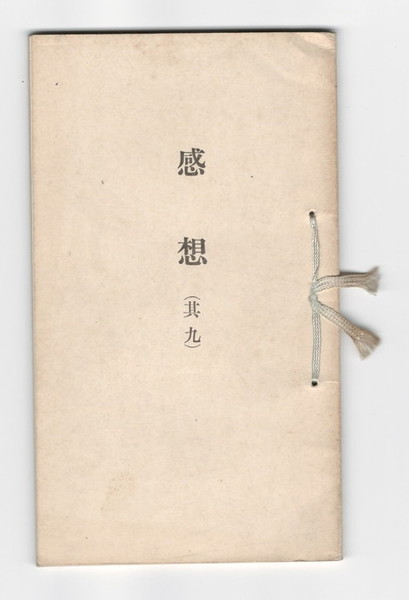 感想(其九)